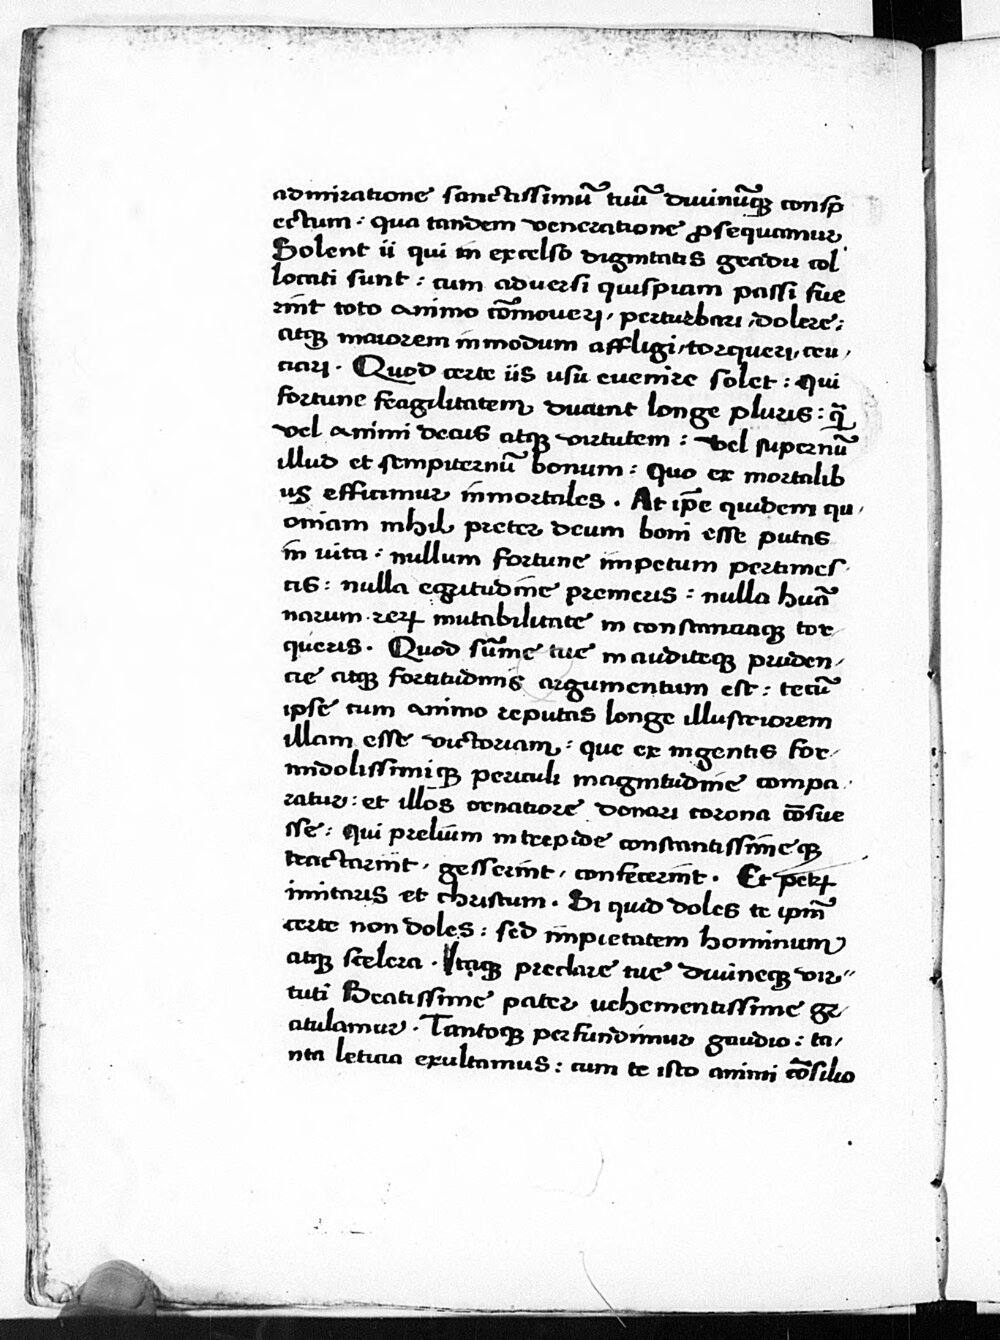 admiratione sanctissimū tuū diuinūqꝫ consp
ectum: qua tandem veneratione ꝓsequamur.
Solent ii qui in excelso dignitatis gradu col
locati sunt: cum aduersi quispiam passi fue
rint toto animo cōmoueri, perturbari, dolere:
atqꝫ maiorem inmodum affligi, torqueri, cru,
ciari. Quod certe iis usu euenire solet: Qui
fortune fragilitatem ducunt longe pluris: q̄
vel animi decus atqꝫ virtutem: vel supernū
illud et sempiternū bonum: Quo ex mortalib
us efficimur inmortales. At ip̄e quidem qu,
oniam nihil preter deum boni esse putas
in uita: nullum fortune impetum pertimes,
cis: nulla egritudine premeris: nulla huā
narum rerꝝ mutabilitate inconstanciaqꝫ tor,
queris. Quod sūme tue inauditeqꝫ pruden,
cie atqꝫ fortitudinis argumentum est: tecū
ipse cum animo reputas longe illustriorem
illam esse victoriam: que ex ingentis for,
midolissimiqꝫ periculi magnitudine compa,
ratur: et illos ornatiore donari corona cōsue
sse: qui prelium intrepide constantissimeqꝫ
tractarint, gesserint, confecerint. Et petrꝝ
imitaris et christum. Si quid doles te ipm̄
certe non doles: sed impietatem hominum
atqꝫ scelera. Itaqꝫ preclare tue diuineqꝫ vir,
tuti Beatissime pater uehementissime gr,
atulamur. Tantoqꝫ perfundimur gaudio: ta,
nta leticia exultamus: cum te isto animi cōsilio